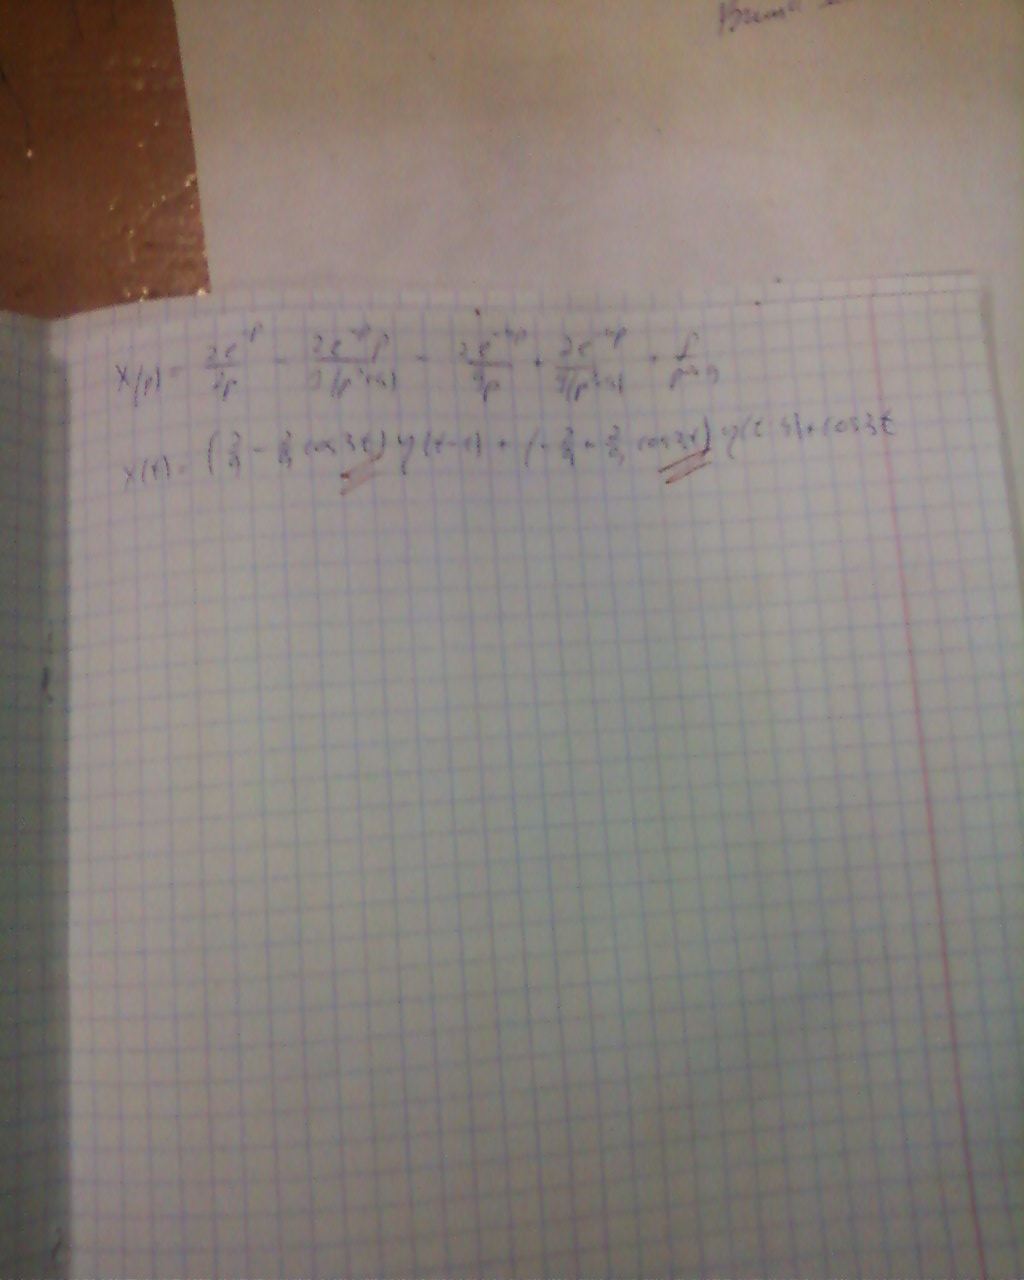 X(p) = \frac{2e^{-p}}{9p} - \frac{2e^{-p}p}{9(p^2+9)} - \frac{2e^{-4p}}{9p} + \frac{2e^{-4p}}{9(p^2+9)} + \frac{p}{p^2+9}
x(t) = (\frac{2}{9} - \frac{2}{9} cos 3t) η(t-1) + (-\frac{2}{9} + \frac{2}{9} cos 3t) η(t-4) + cos 3t